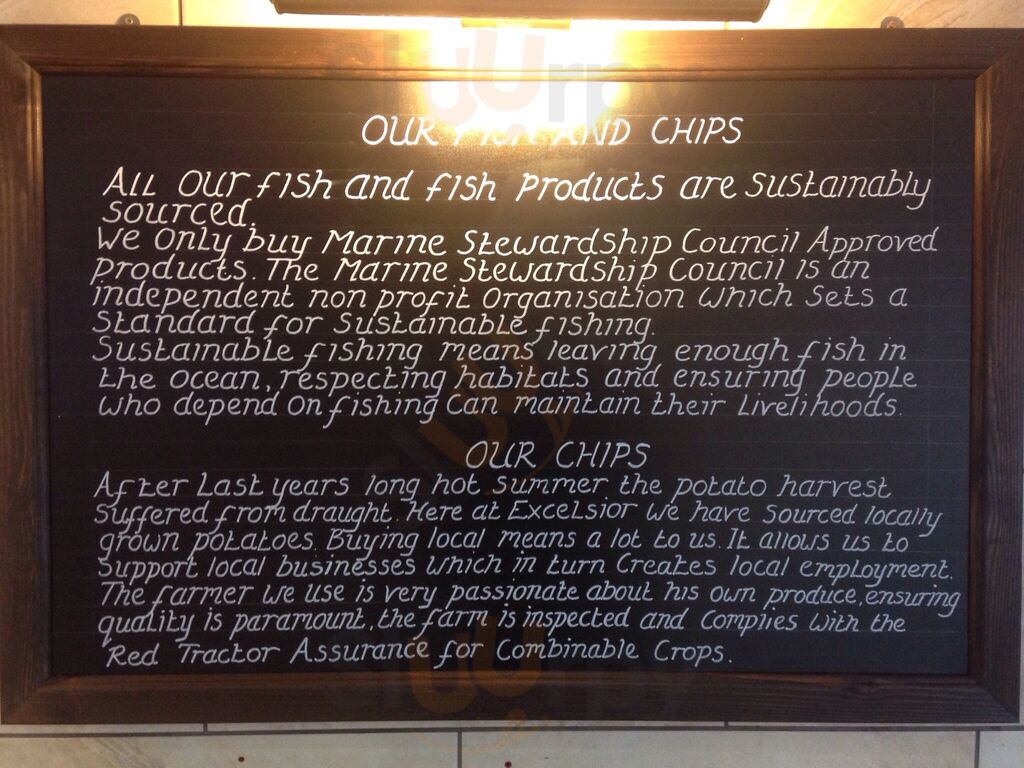 OUR AND CHIPS
All our fish and fish products are sustainably
sourced.
We only buy Marine Stewardship Council Approved
products. The Marine Stewardship Council is an
independent non profit organisation which sets a
standard for sustainable fishing.
Sustainable fishing means leaving enough fish in
the ocean, respecting habitats and ensuring people
who depend on fishing can maintain their livelihoods.
OUR CHIPS
After last years long hot summer the potato harvest
suffered from draught. Here at Excelsior we have sourced locally
grown potatoes. Buying local means a lot to us. It allows us to
support local businesses which in turn creates local employment.
The farmer we use is very passionate about his own produce, ensuring
quality is paramount, the farm is inspected and complies with the
Red Tractor Assurance for Combinable Crops.